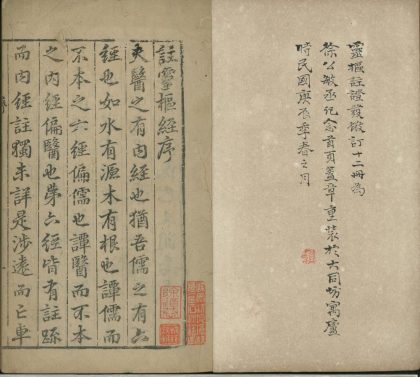 靈樞註證發微訂十二冊爲
徐公敏丞紀念首頁蓋章重裝於大同坊寓廬
時民國庚辰季春之月
註靈樞經序
夫醫之有內經也猶吾儒之有六
經也如水有源木有根也譚儒而
不本之六經偏儒也譚醫而不本
之內經偏醫也第六經皆有註䟽
而內經註獨未詳是涉遠而亡車